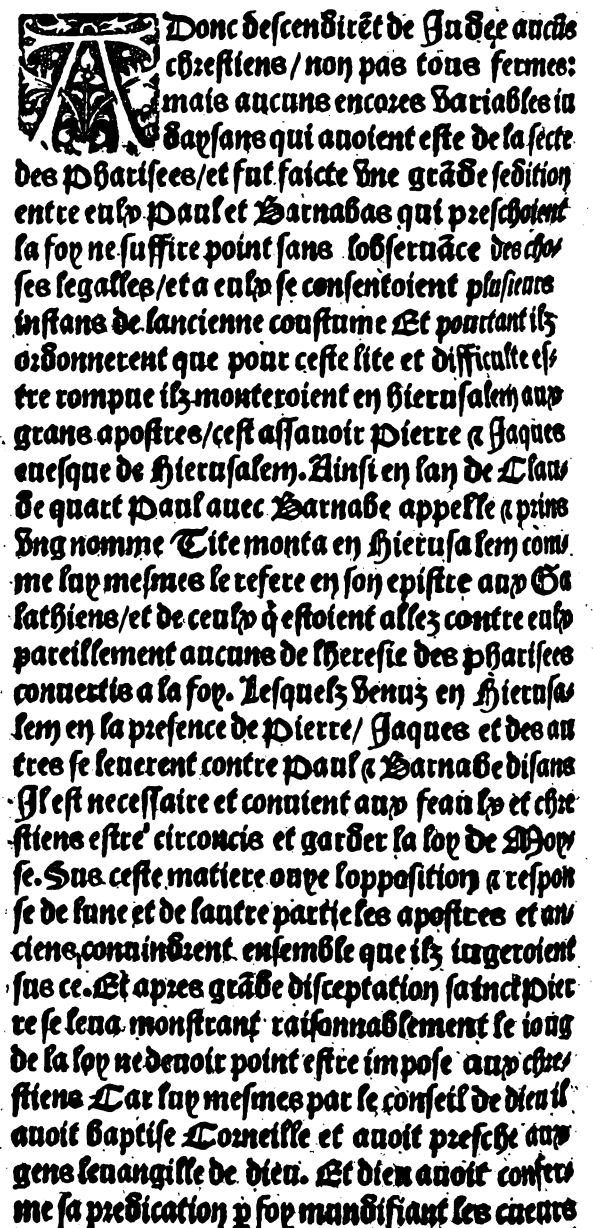 ADonc descendirēt de Judee aucūs
chrestiens/non pas tous fermes:
mais aucuns encores variables iu
daysans qui auoient este de la secte
des Pharisees/et fut faicte vne grāde sedition
entre eulx Paul et Barnabas qui preschoient
la foy ne suffire point sans lobseruāce des cho⸗
ses legalles/et a eulx se consentoient plusieurs
instans de lancienne coustume Et pourtant ilz
ordonnerent que pour ceste lite et difficulte es⸗
tre rompue ilz monteroient en Hierusalem aux
grans apostres/cest assauoir Pierre ⁊ Jaques
euesque de Hierusalem. Ainsi en lan de Clau⸗
de quart Paul auec Barnabe appelle ⁊ prins
vng nomme Tite monta en Hierusalem com⸗
me luy mesmes le refere en son epistre aux Ga
lathiens/et de ceulx q̇ estoient allez contre eulx
pareillement aucuns de lheresie des pharisees
conuertis a la foy. Lesquelz venuz en Hierusa⸗
lem en la presence de Pierre/ Jaques et des au
tres se leuerent contre Paul ⁊ Barnabe disans
Il est necessaire et conuient aux feaulx et chre
stiens estre circoncis et garder la loy de Moy⸗
se. Sus ceste matiere ouye lopposition ⁊ respon
se de lune et de lautre partie les apostres et an⸗
ciens conuindrent ensemble que ilz iugeroient
sus ce. Et apres grāde disceptation sainct Pier
re se leua monstrant raisonnablement le ioug
de la loy ne deuoit point estre impose aux chre⸗
stiens Car luy mesmes par le conseil de dieu il
auoit baptise Corneille et auoit presche aux
gens leuangille de dieu. Et dieu auoit confer⸗
me sa predication ꝑ foy mundifiant les cueurs